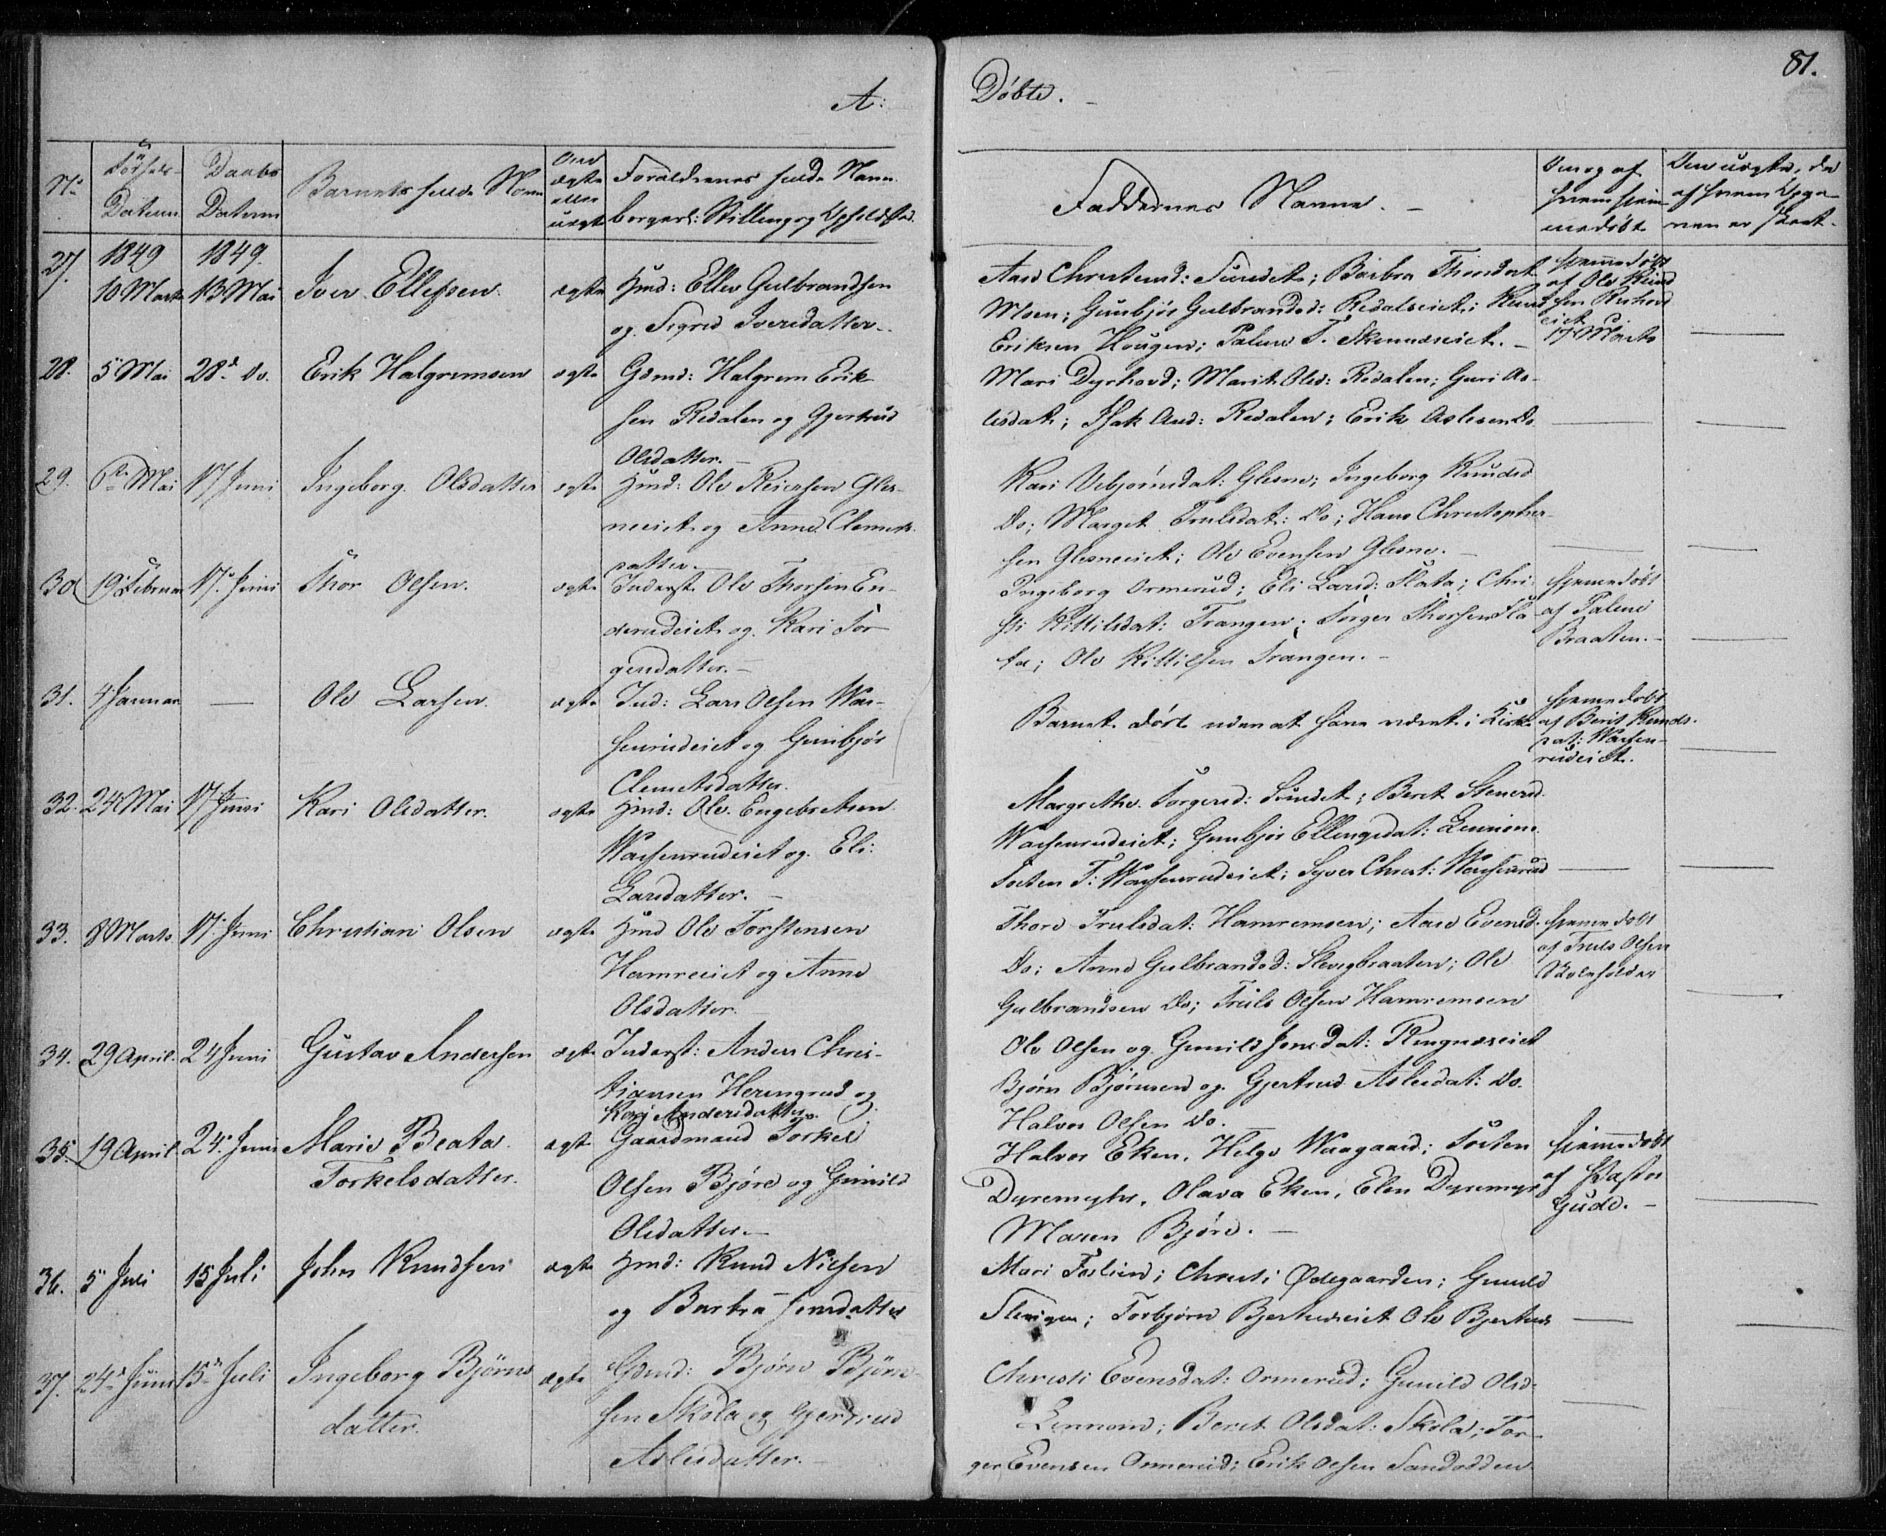 A:
Døbte.
81.
No
Fødsels-Datum
Daabs Datum
Barnets fulde Navn
Om ægte eller uægte
Forældrenes fulde Navn
borgerl: Stilling og Opholdsted.
Faddernes Navne.
27. 1849 10 Marts
1849. 13 Mai
Iver Ellefsen.
ægte
Hmd: Ellev Gulbrandsen
og Sigrid Iversdatter.
Aase Christensd: Sundet; Barbra Thorsdat
Moen; Gunbjør Gulbrandsd: Redalseiet; Knud
Eriksen Hougen;
hjemmedøbt
af Ole Knud
sen
17 Marts
28. 5 Mai 28de do. Erik Halgremsen ægte
Gdmd: Halgrem Erik
sen Redalen og Gjertrud
Olsdatter.
Mari Dyrhovd; Marit Olsd: Redalen; Guri As-
lesdat; Isak And: Redalen; Erik Aslesen Do
29. 6te Mai 17 Juni Ingeborg Olsdatter ægte
Hmd: Ole Reiersen Gles-
neeiet og Anne Clemets
datter.
Kari Vebjørnsdat: Glesne; Ingeborg Knudsd
Do; Marget Trulsdat: Do; Hans Christopher-
sen Glesneeiet; Ole Evensen Glesne.
30. 19 Februar 17 Juni Thor Olsen. ægte
Inderst Ole Thorsen En-
derudeiet og Kari Tor
gersdatter.
Ingeborg Ormerud; Eli Larsd: Slata; Chri-
sti Kittilsdat: Trangen; Torger Thorsen Sla
ta; Ole Kittilsen Trangen.
hjemmedøbt
af
Braaten.
31. 4 Januar — Ole Larsen. ægte
Ind: Lars Olsen Was-
senrudeiet og Gunbjør
Clemetsdatter.
Barnet døde uden at have været i Kirke
hjemmedøbt
af Berit Knuds
dat: Wassen-
rudeiet.
32. 24 Mai 17 Juni Kari Olsdatter. ægte
Hmd: Ole Engebretsen
Wassenrudeiet og Eli
Larsdatter.
Margrethe Torgersd: Sundet; Beret Stenersd
Wassenrudeiet; Gunbjør Ellingsdat:
Tosten T: Wassenrudeiet; Syver Christ: Wassenrud
33. 8 Marts 17 Juni Christian Olsen ægte
Hmd Ole Torstensen
Hamreeiet og Anne
Olsdatter.
Thore Trulsdat: Hamremoen; Aase Evensd.
Do; Anne Gulbrandsd: Slevigbraaten; Ole
Gulbrandsen Do; Truls Olsen Hamremoen
hjemmedøbt
af Truls Olsen
Skoleholder
34. 29 April. 24 Juni Gustav Andersen ægte
Inderst: Anders Chris-
tiansen Herengrud og
Kari Andersdatter.
Ole Olsen og Gunild Jonsdat: Ringnæseiet
Bjørn Bjørnsen og Gjertrud Aslesdat: Do.
Halvor Olsen Do.
35. 19 April. 24. Juni Marie Beata
Torkelsdatter.
ægte
Gaardmand Torkel
Olsen Bjøre og Gunild
Olsdatter.
Halvor Eken, Helge Waagaard; Tosten
Dyremyhr, Olava Eken, Elen Dyremyr
Maren Bjøre.
hjemmedøbt
af Pastor
Gude.
36. 5 Juli 15 Juli John Knudsen ægte
Hmd: Knud Nilsen
og Barbra Jensdatter
Mari Foslien; Christi Ødegaarden; Gunild
Slevigen; Torbjørn Bjertnæseiet Ole Bjertnæs
37. 24de Juni 15de Juli Ingeborg Bjørns
datter.
ægte
Gdmd: Bjørn Bjørn-
sen Skola og Gjertrud
Aslesdatter.
Christi Evensdat: Ormerud; Gunild Olsd:
Beret Olsdat: Skola; Tor-
ger Evensen Ormerud; Erik Olsen Sandodden